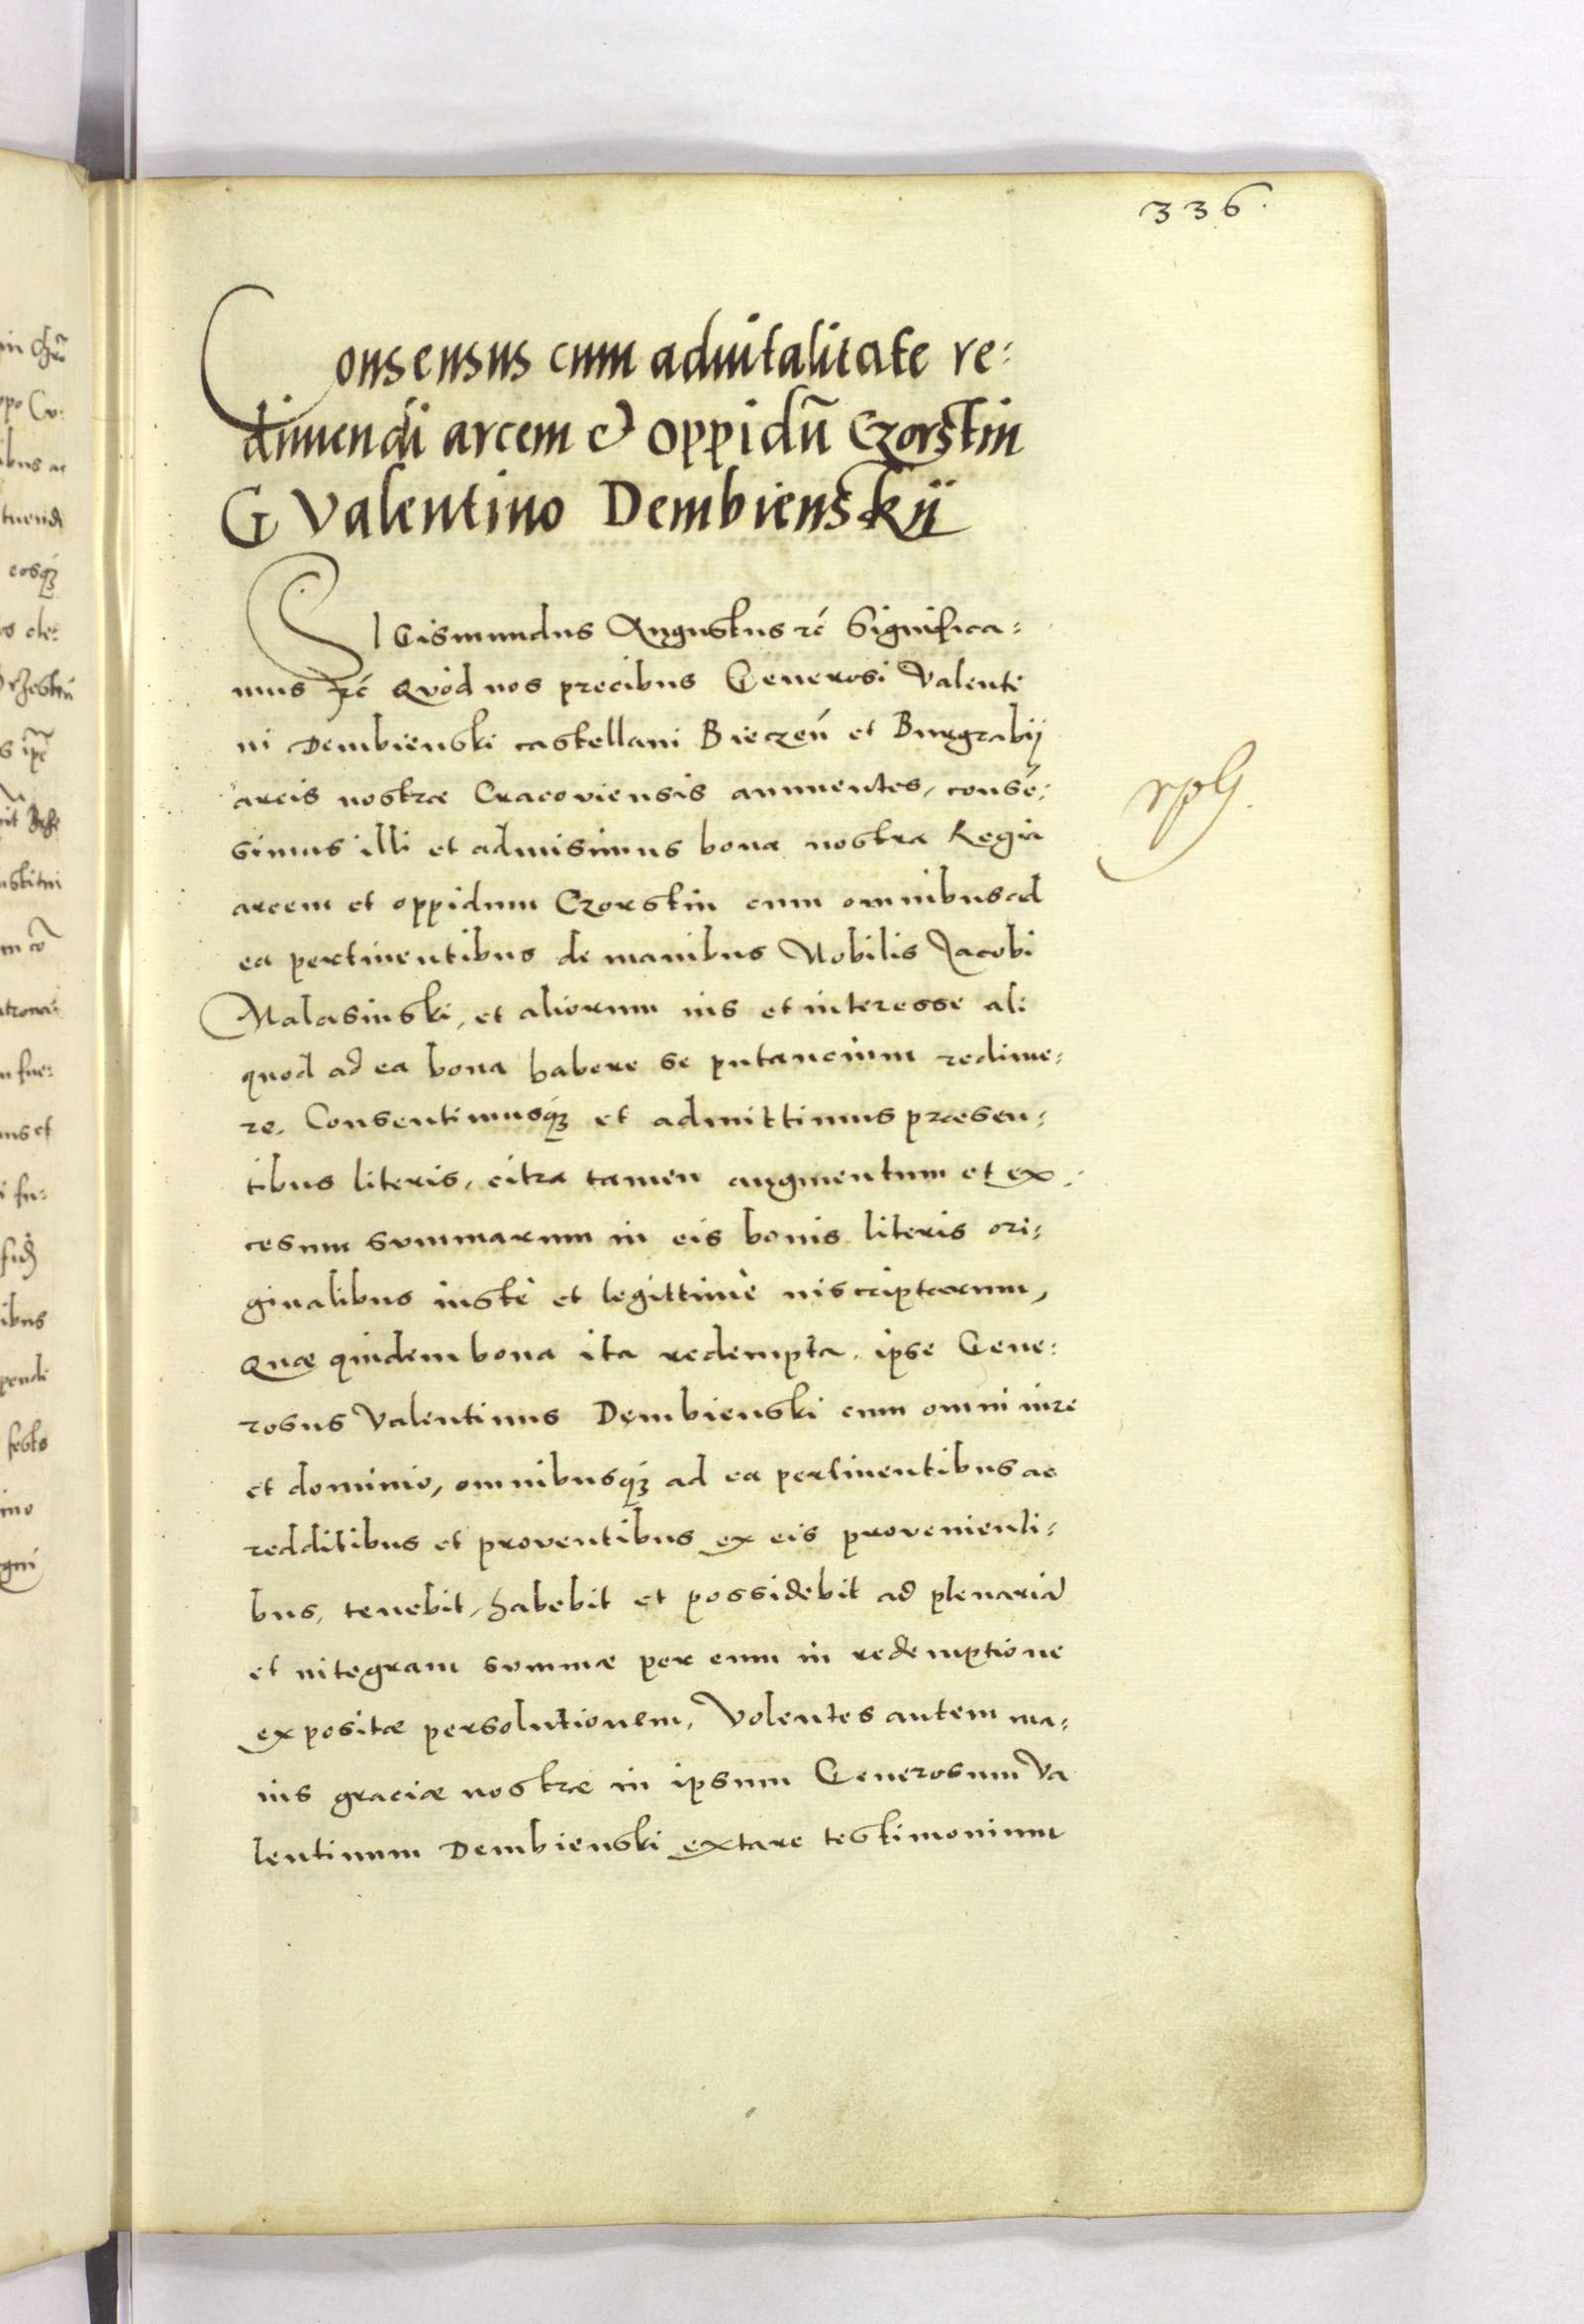 336.
Consensus cum aduitalitate re:
dimendi arcem et oppidũ Czorstin
G Valentino Dembienskij
SIGismundus Augustus rc̃ Significa:
mus rc̃ Quòd nos precibus Generosi Valenti
ni Dembienski castellani Bieczeñ et Burgrabij
arcis nostræ Cracoviensis annuentes, consẽ:
simus illi et admisimus bona nostra Regia
arcem et oppidum Czorstin cum omnibus ad
ea pertinentibus de manibus Nobilis Jacobi
Malasinski, et aliorum ius et interesse ali
quod ad ea bona habere se putancium redime:
re. Consentimusq3 et admittimus præsen:
tibus literis, citra tamen augmentum et ex:
cesum summarum in eis bonis literis ori:
ginalibus iustè et legittimè inscriptarum,
Quæ quidem bona ita redempta. ipse Gene:
rosus Valentinus Dembienski cum omni iure
et dominio, omnibusq3 ad ea pertinentibus ac
redditibus et proventibus ex eis provenienti:
bus, tenebit, habebit et possidebit ad plenariã
et integram summæ per eum in redemptione
expositæ persolutionem, Volentes autem ma:
ius graciæ nostræ in ipsum Generosum Va
lentinum Dembienski extare testimonium